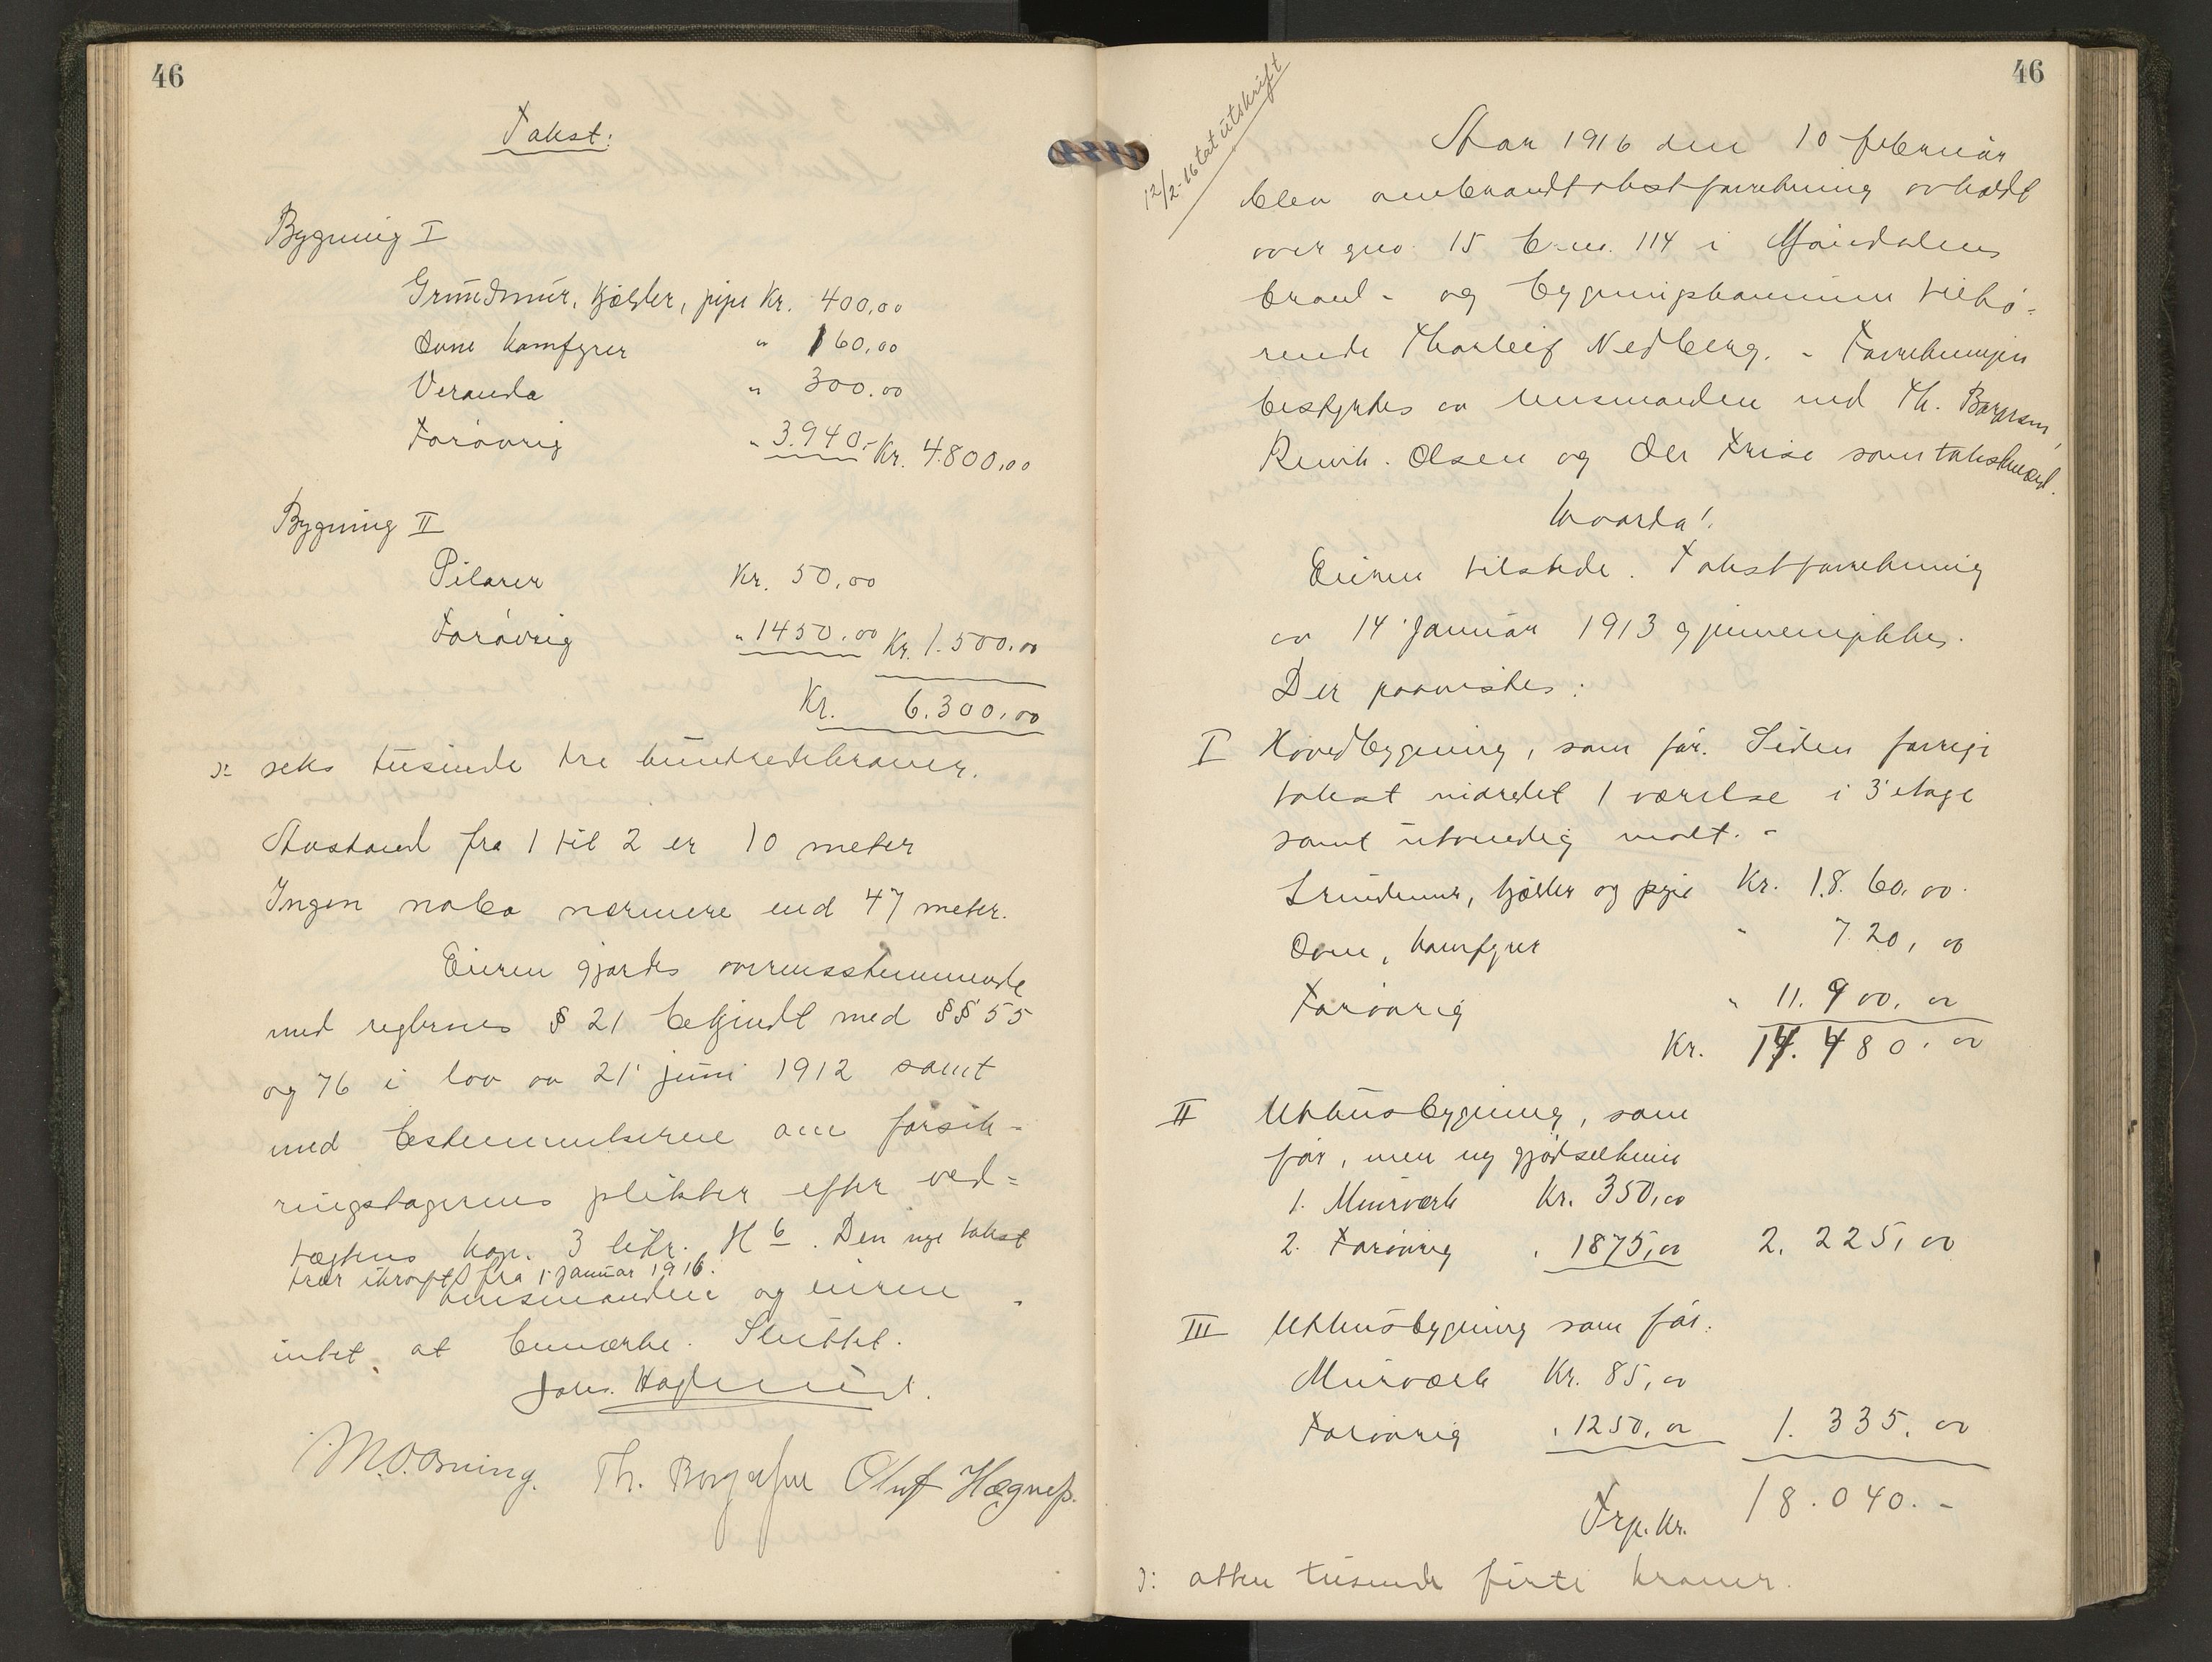 46
Takst:
Bygning I
Grundmur, kjelder, pipe Kr. 400,00
Ovne komfyrer " 160,00
Veranda " 300.00
Forøvrig " 3.940,- Kr. 4.800,00
Bygning II
Pilarer Kr. 50,00
Forøvrig " 1450.00 Kr. 1.500.00
Kr. 6.300,00
ɔ: seks tusinde tre hundredekroner.
Avstand fra 1 til 2 er 10 meter
Ingen nabo nærmere end 47 meter.
Eieren gjordes overensstemmende
med reglernes § 21 bekjendt med §§ 55
og 76 i lov av 21' juni 1912 samt
med bestemmelserne om forsik-
ringstagerens plikter efter ved=
tægtens kap. 3 litr. H 6. Den nye takst
trær ikraft fra 1 januar 1916.
Lensmanden og eieren
intet at bemerke. Sluttet.
Johs.
M.O. Orning. Th. Borgersen Oluf Hægnes.
46
12/2-16 tat utskrift
Aar 1916 den 10 februar
blev ombrandtakstforretning avholdt
over gno. 15 b.no. 114 i Mjøndalens
brand- og bygningskommune tilhø-
rende Thorleif Nedberg. - Forretningen
bestyrtes av lensmanden med Th. Borgersen,
Reinh. Olsen og Ole Frise som takstmænd.
Hvorda!
Eieren tilstede. Takstforretning
av 14' januar 1913 gjennemgikkes.
Der paavistes:
I Hovedbygning, som før. Siden forrige
takst indredet 1 værelse i 3' etage
samt utvendig malt. -
Grundmur, kjelder og pipe Kr. 1.860,00.
Ovne, komfyrer " 720,00
Forøvrig " 11.900.00
Kr. 14.480.00
II Uthusbygning, som
før, men ny gjødselkum
1. Murværk Kr. 350,00
2. Forøvrig " 1875,00 2.225,00
III Uthusbygning som før.
Murværk Kr. 85,00
Forøvrig " 1250,00 1.335.00
Trp. Kr. 18.040.-
ɔ: atten tusinde firti kroner.